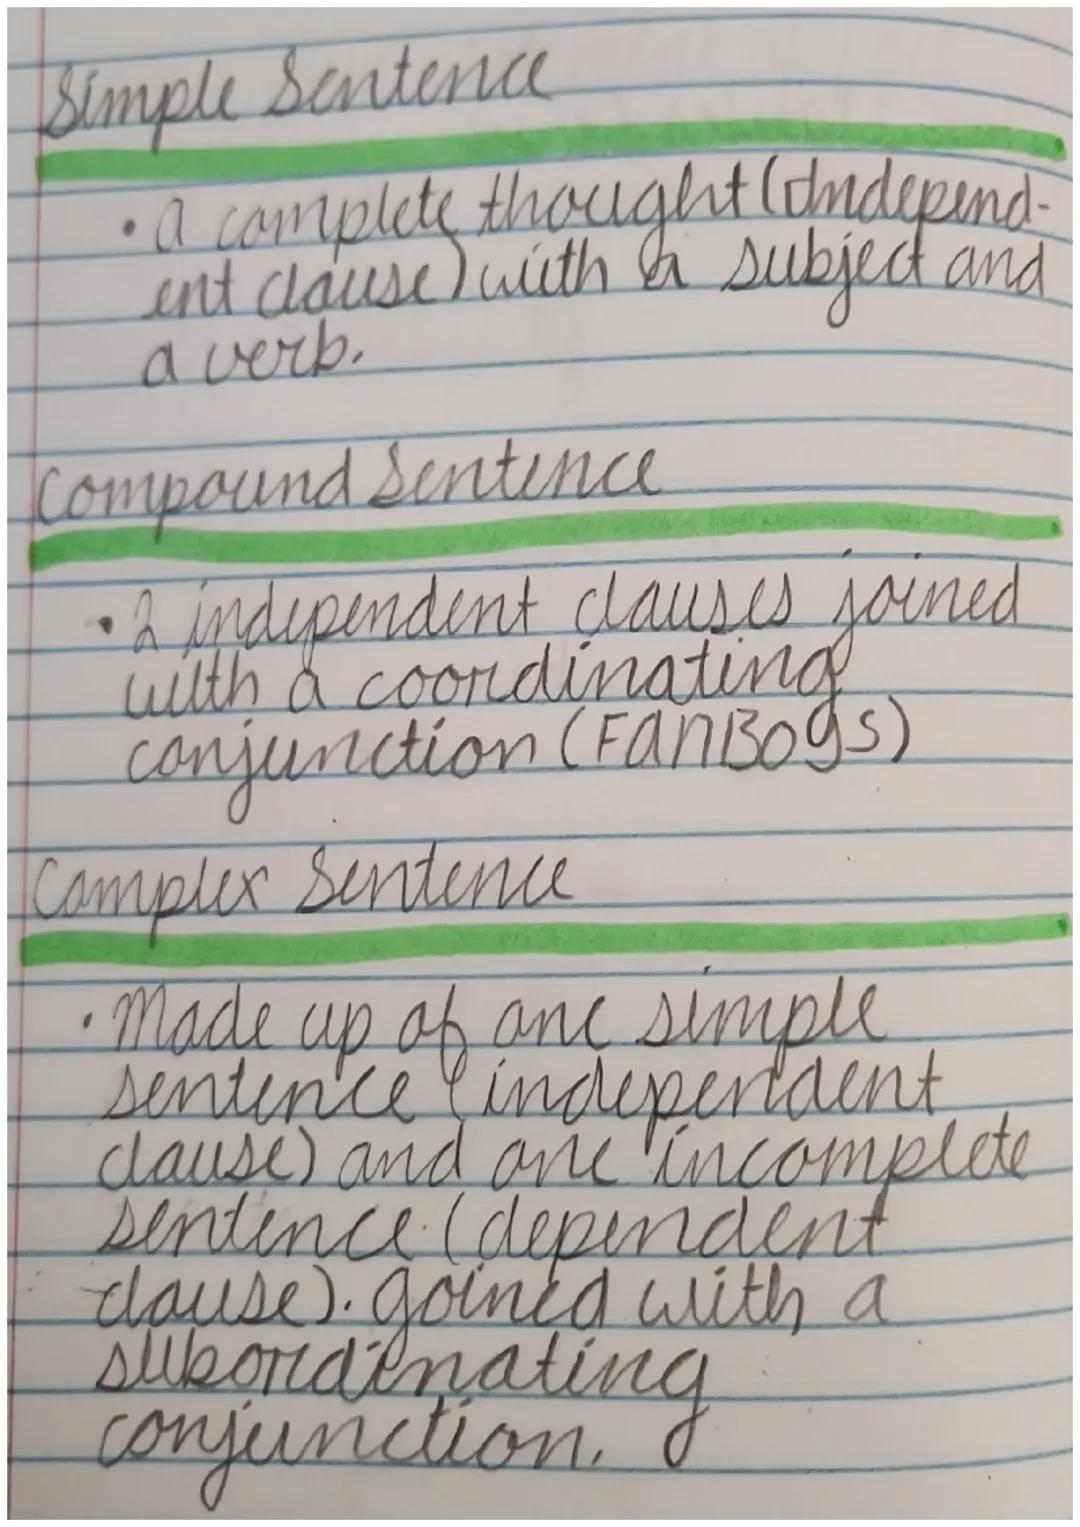 Simple Sentence
• a complete thought (Independ-
ent clause) with a subject and
a verb.
Compound Sentence
• 2 independent clauses joined
with a coordinating
conjunction (FanBoys)
Complex Sentence
• Made up of one simple
sentence (independent
clause) and one incomplete
sentence (dependent
clause). joined with a
subordinating
conjunction.